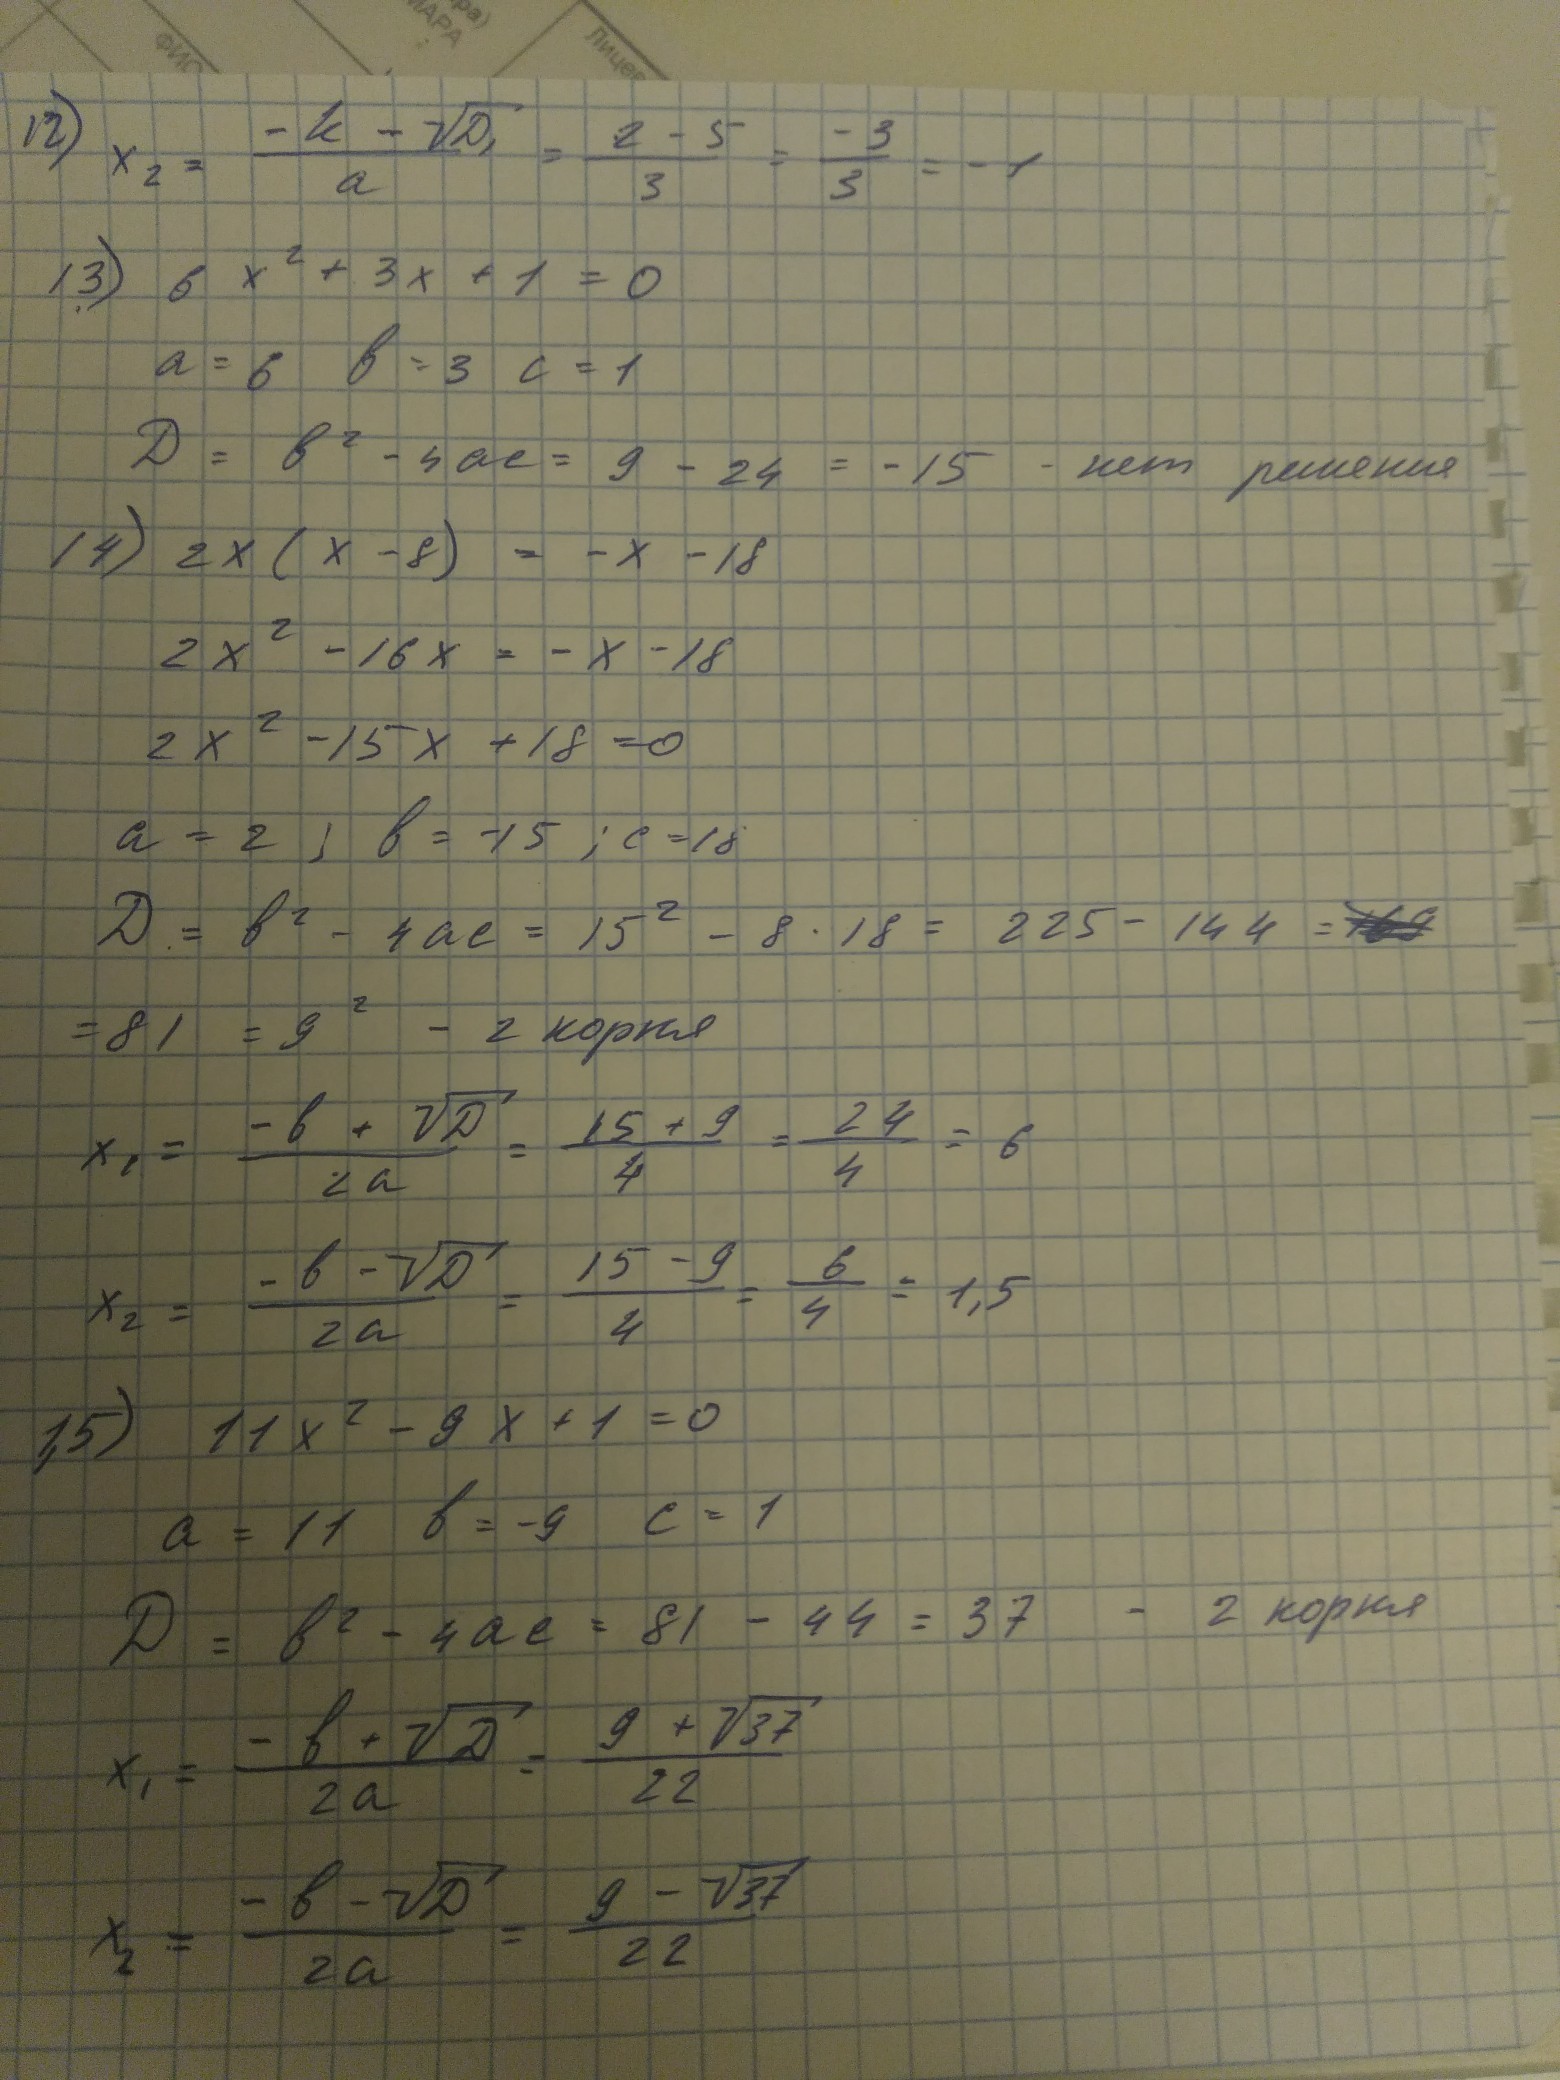 ра)
МАРА
ФИО
Лицев
12) x₂ = (-k - √D₁)/a = (2 - 5)/3 = -3/3 = -1
13) 6x² + 3x + 1 = 0
a = 6 b = 3 c = 1
D = b² - 4ac = 9 - 24 = -15 - нет решения
14) 2x(x - 8) = -x - 18
2x² - 16x = -x - 18
2x² - 15x + 18 = 0
a = 2; b = -15; c = 18
D = b² - 4ac = 15² - 8 · 18 = 225 - 144 =
= 81 = 9² - 2 корня
x₁ = (-b + √D)/2a = (15 + 9)/4 = 24/4 = 6
x₂ = (-b - √D)/2a = (15 - 9)/4 = 6/4 = 1,5
15) 11x² - 9x + 1 = 0
a = 11 b = -9 c = 1
D = b² - 4ac = 81 - 44 = 37 - 2 корня
x₁ = (-b + √D)/2a = (9 + √37)/22
x₂ = (-b - √D)/2a = (9 - √37)/22